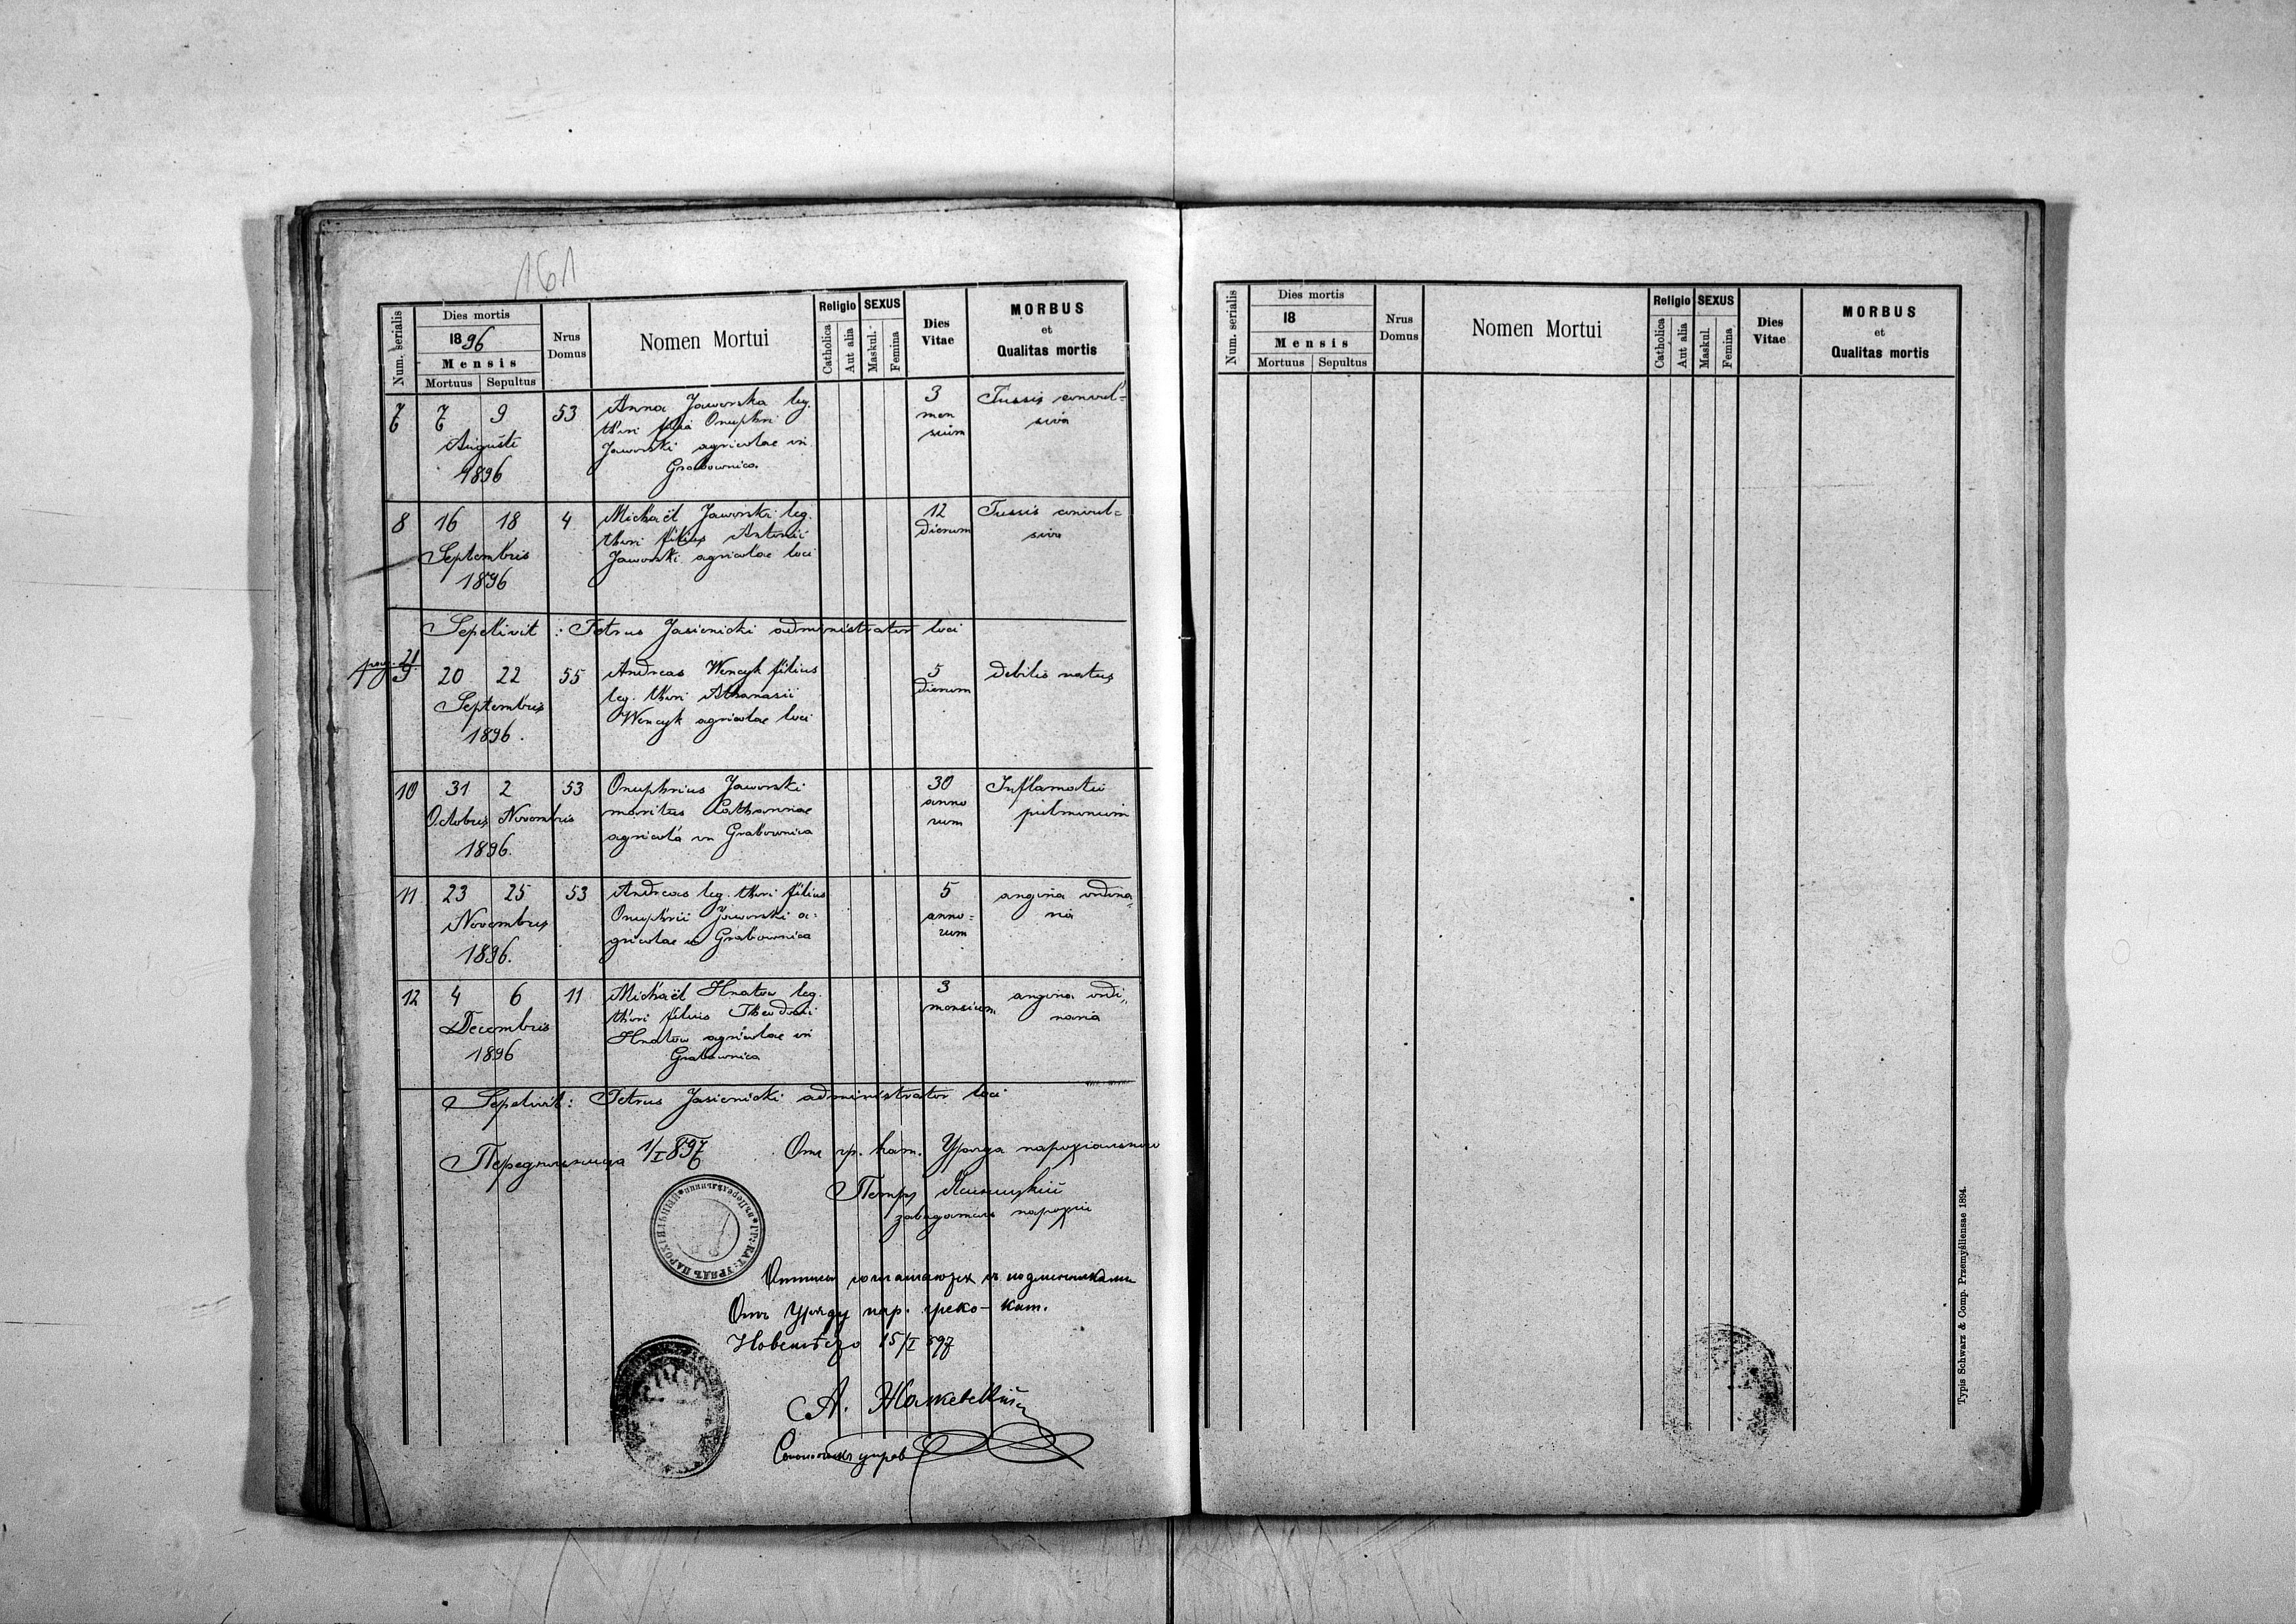 161
Num. serialis
Dies mortis
1896
Mensis
Mortuus Sepultus
Nrus Domus
Nomen Mortui
Religio
Catholica
Aut alia
SEXUS
Maskul.
Femina
Dies Vitae
MORBUS
et
Qualitas mortis
7 7 9 53 Anna Jaworska leg. 3 Tussis convul=
Augusti thori filia Onuphri men siva
1896 Jaworski agricolae in sium
Grabownica
8 16 18 4 Michaël Jaworski leg. 12 Tussis convul=
Septembris thori filius Antonii dierum siva
1896 Jaworski agricolae loci
Sepelivit : Petrus Jasienicki administrator loci
9 20 22 55 Andreas Wencyk filius 5 debilis natus
Septembris leg. thori Athanasii dierum
1896. Wencyk agricolae loci
10 31 2 53 Onuphrius Jaworski 30 Inflamatio
Octobris Novembris maritus Catharinae anno pulmonum
1896. agricola in Grabownica rum
11 23 25 53 Andreas leg. thori filius 5 angina ordina=
Novembris Onuphrii Jaworski a= anno= ria
1896. gricolae in Grabownica rum
12 4 6 11 Michaël Hnatow leg. 3 angina ordi„
Decembris thori filius Theodosii mensium naria
1896 Hnatow agricolae in
Grabownica
Sepelivit: Petrus Jasienicki administrator loci
1/I 897 От гр. кат. Уряда парохіального
Петръ Ясѣницкій
завѣдатель парохіи
Отъ Уряду пар. греко-кат.
15/I 897
Num. serialis
Dies mortis
18
Mensis
Mortuus Sepultus
Nrus Domus
Nomen Mortui
Religio
Catholica
Aut alia
SEXUS
Maskul.
Femina
Dies Vitae
MORBUS
et
Qualitas mortis
Typis Schwarz & Comp. Przemyśliensae 1894.